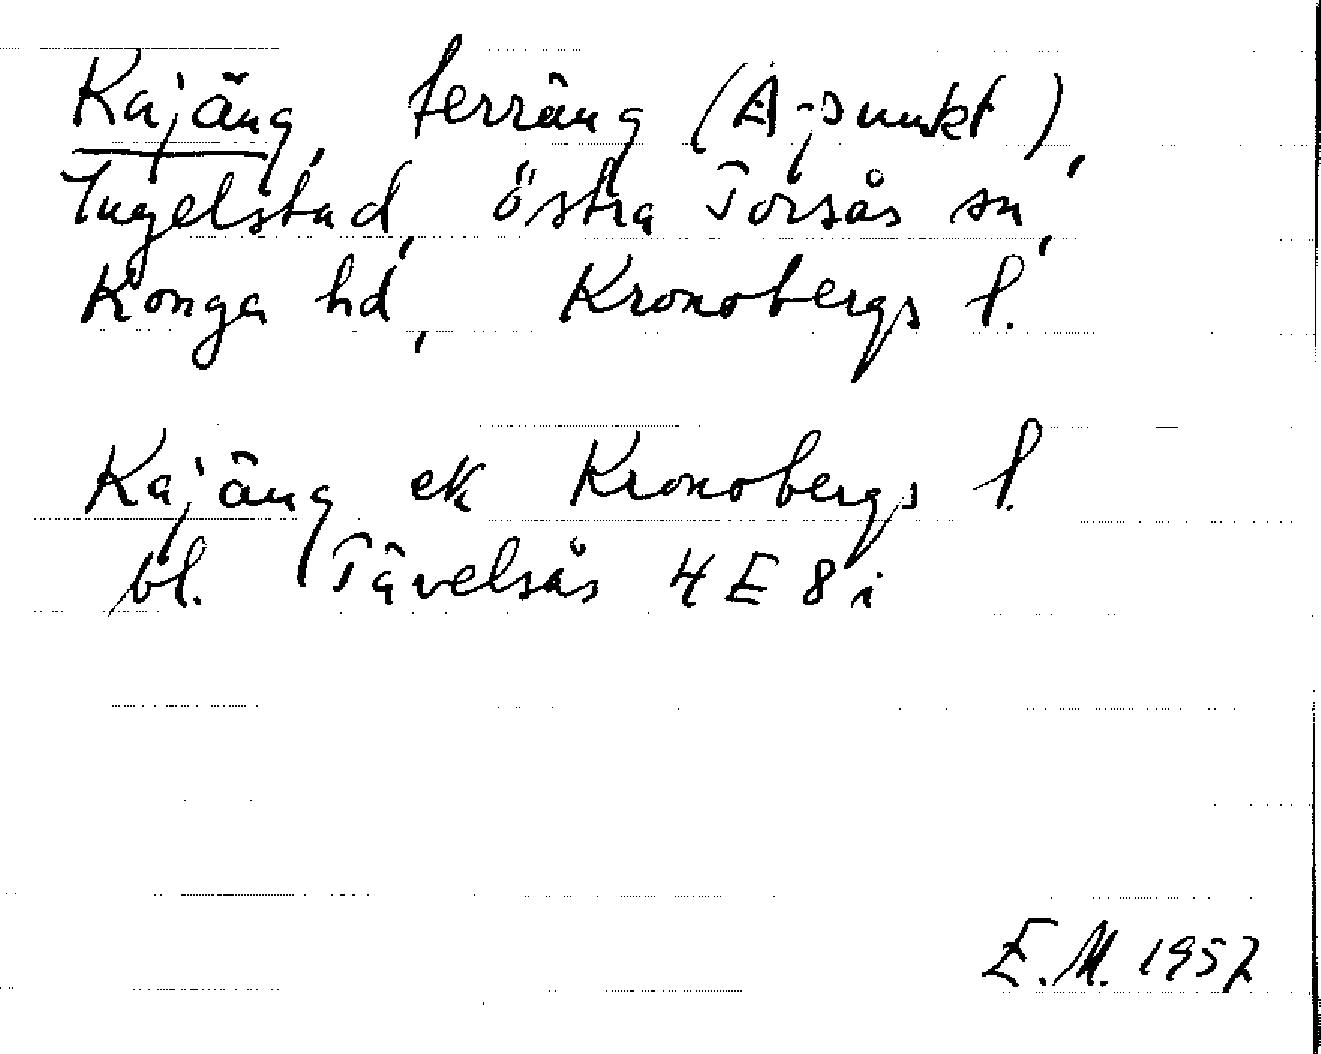 Kajäng, terräng (A-punkt),
Ingelstad, östra Torsås sn,
Konga hd, Kronobergs l.
Kajäng ek Kronobergs l.
bl. Tävelsås 4 E 8 i
E.M. 1957